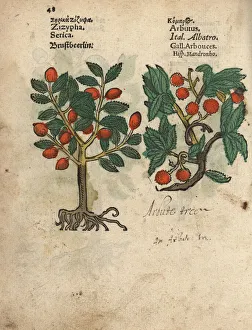 48
Ζιζυφα.
Zizypha.
Serica.
Brustbeerlin.
Κόμαρ
Arbutus.
Ital. Albatro.
Gall. Arbouces.
Hisp. Madronho.
Arbute treee